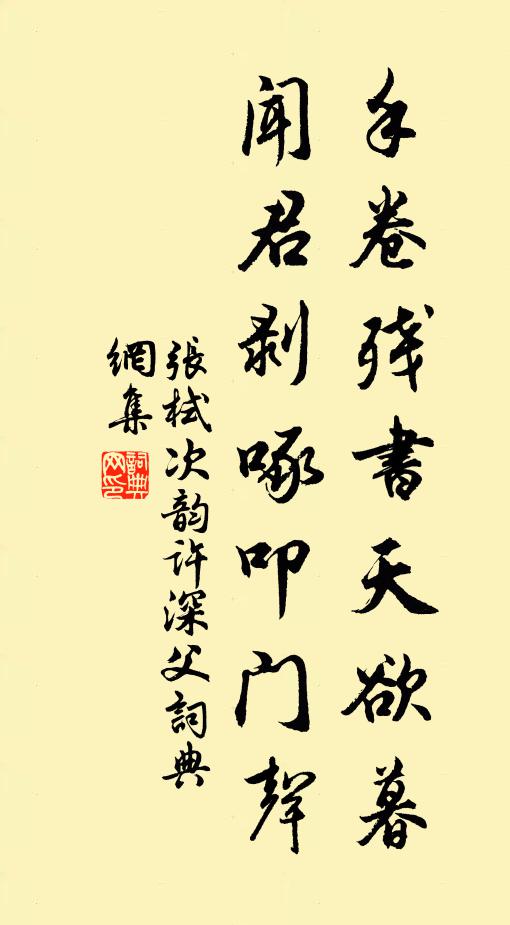 手卷残書天欲暮
聞君剥啄叩门聲
張栻次韵許深父詞典
網集
詞典網印